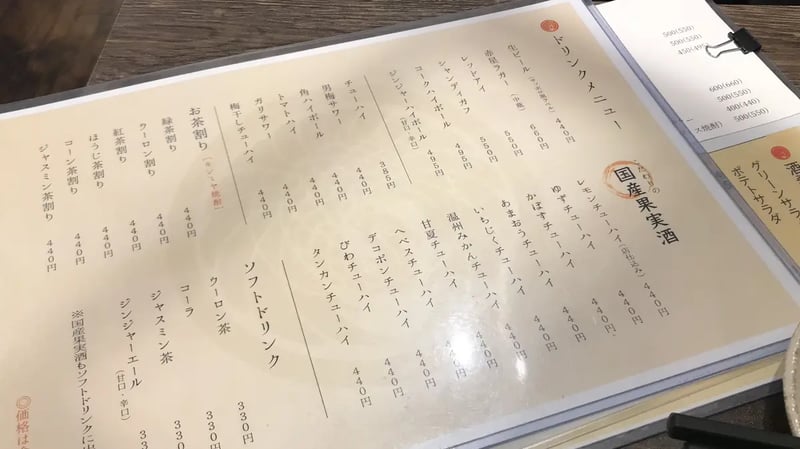 ドリンクメニュー
生ビール(サッポロ黒ラベル) 440円
赤星ラガー(中瓶) 660円
レッドアイ 550円
シャンディガフ 550円
コークハイボール 495円
ジンジャーハイボール(甘口・辛口) 495円
チューハイ 385円
男梅サワー 440円
角ハイボール 440円
トマトハイ 440円
ガリサワー 440円
梅干しチューハイ 440円
お茶割り(キンミヤ焼酎)
緑茶割り 440円
ウーロン割り 440円
紅茶割り 440円
ほうじ茶割り 440円
コーン茶割り 440円
ジャスミン茶割り 440円
こだわりの
国産果実酒
レモンチューハイ(店仕込み) 440円
ゆずチューハイ 440円
かぼすチューハイ 440円
あまおうチューハイ 440円
いちじくチューハイ 440円
温州みかんチューハイ 440円
甘夏チューハイ 440円
ヘベスチューハイ 440円
デコポンチューハイ 440円
びわチューハイ 440円
タンカンチューハイ 440円
ソフトドリンク
ウーロン茶 330円
コーラ 330円
ジャスミン茶 330
ジンジャーエール(甘口・辛口) 33
※国産果実酒もソフトドリンクに
◎価格は
500(550)
500(550)
450(49
600(660)
500(550)
400(440)
ス焼酎) 500(550)
酒
グリーンサラ
ポテトサラダ